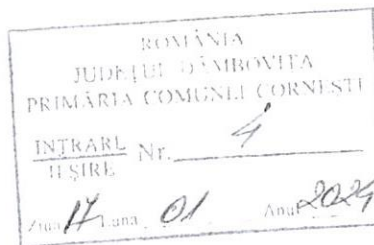 ROMÂNIA
JUDEŢUL DÂMBOVIŢA
PRIMĂRIA COMUNEI CORNEŞTI
INTRARE
IEŞIRE Nr. 4
Ziua 17 Luna 01 Anul 2024